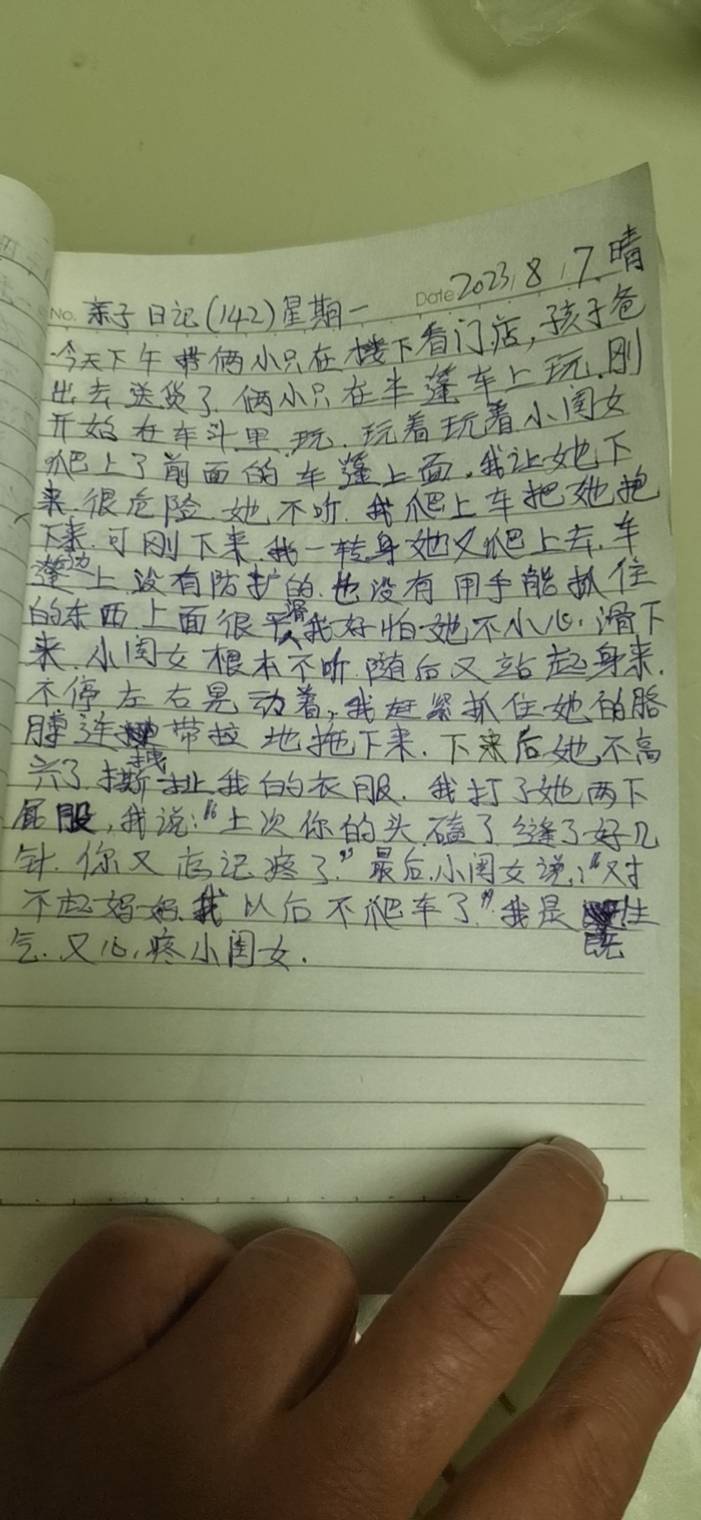 Date 2023.8.7 晴
No. 亲子日记(142)星期一
今天下午带俩小只在楼下看门店,孩子爸
出去送货了.俩小只在半蓬车上玩.刚
开始在车斗里玩.玩着玩着小闺女
爬上了前面的车蓬上面.我让她下
来.很危险.她不听.我爬上车把她抱
下来.可刚下来.我一转身她又爬上去.车
蓬边上没有防护的.也没有用手能抓住
的东西.上面很滑我好怕她不小心.滑下
来.小闺女根本不听.随后又站起身来.
不停左右晃动着,我赶紧抓住她的胳
膊连带拉地拖下来.下来后她不高
兴了.撕扯我的衣服.我打了她两下
屁股,我说:“上次你的头磕了缝了好几
针.你又忘记疼了.”最后,小闺女说:“对
不起妈妈.我以后不爬车了”我是既生
气.又心疼小闺女.